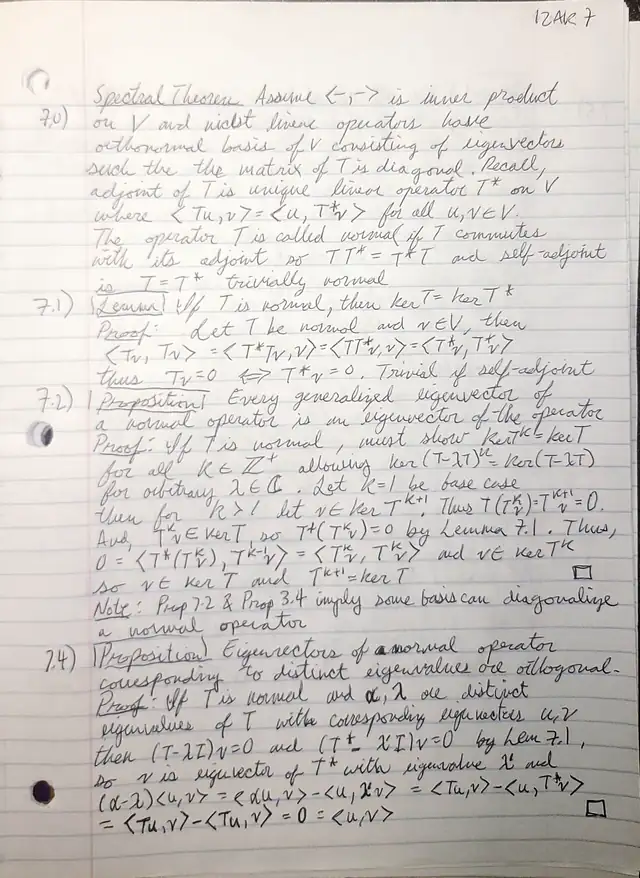 12AR 7
Spectral Theorem Assume <-,-> is inner product
7.0) on V and nicest linear operators have
orthonormal basis of V consisting of eigenvectors
such the the matrix of T is diagonal. Recall,
adjoint of T is unique linear operator T* on V
where <Tu,v> = <u,T*v> for all u,v∈V.
The operator T is called normal if T commutes
with its adjoint so TT* = T*T and self-adjoint
is T = T* trivially normal
7.1) |Lemma| If T is normal, then ker T = ker T*
Proof: Let T be normal and v∈V, then
<Tv, Tv> = <T*Tv,v> = <TT*v,v> = <T*v, T*v>
thus Tv=0 ⟺ T*v = 0. Trivial if self-adjoint
7.2) |Proposition| Every generalized eigenvector of
a normal operator is an eigenvector of the operator
Proof: If T is normal, must show kerT^k = kerT
for all k∈ℤ⁺ allowing ker(T-λI)^k = ker(T-λI)
for arbitrary λ∈ℂ. Let k=1 be base case
then for k>1 let v∈ker T^k+1. Thus T(T^k v)=T^k+1 v=0.
And, T^k v∈kerT, so T*(T^k v)=0 by Lemma 7.1. Thus,
0 = <T*(T^k v), T^k-1 v> = <T^k v, T^k v> and v∈kerT^k
so v∈ ker T and T^k+1 = ker T □
Note: Prop 7.2 & Prop 3.4 imply some basis can diagonalize
a normal operator
7.4) |Proposition| Eigenvectors of a normal operator
corresponding to distinct eigenvalues are orthogonal.
Proof: If T is normal and α, λ are distinct
eigenvalues of T with corresponding eigenvectors u,v
then (T-λI)v=0 and (T*- λ'I)v=0 by Lem 7.1,
so v is eigenvector of T* with eigenvalue λ' and
(α-λ)<u,v> = <αu,v> - <u,λ'v> = <Tu,v> - <u,T*v>
= <Tu,v> - <Tu,v> = 0 = <u,v> □